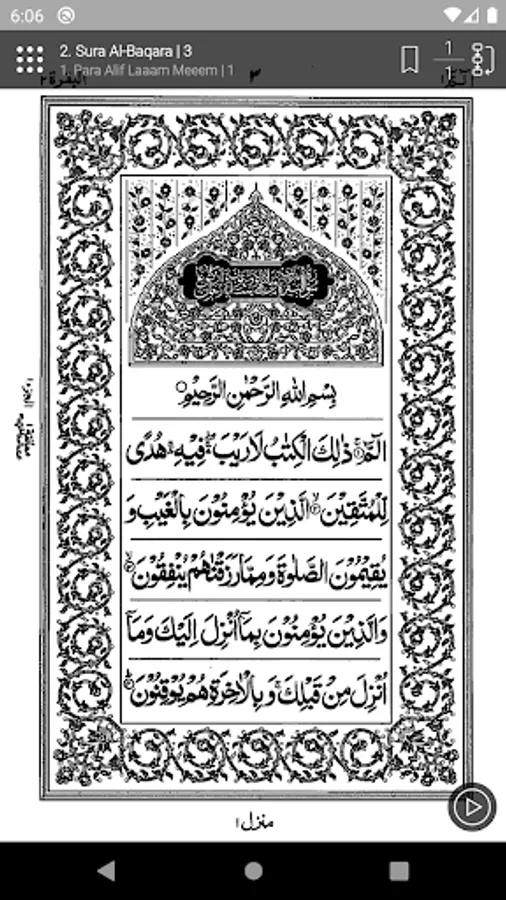 6:06
2. Sura Al-Baqara | 3
1. Para Alif Laaam Meeem | 1
1
1
البقرة ٢
٣
بِسْمِ اللهِ الرَّحْمٰنِ الرَّحِيْمِ
الٓمّٓ ۚ ذٰلِكَ الْكِتٰبُ لَا رَيْبَ ۛ فِيْهِ ۛ هُدًى
لِّلْمُتَّقِيْنَ ۙ الَّذِيْنَ يُؤْمِنُوْنَ بِالْغَيْبِ وَ
يُقِيْمُوْنَ الصَّلٰوةَ وَمِمَّا رَزَقْنٰهُمْ يُنْفِقُوْنَ ۙ
وَالَّذِيْنَ يُؤْمِنُوْنَ بِمَآ اُنْزِلَ اِلَيْكَ وَمَآ
اُنْزِلَ مِنْ قَبْلِكَ ۚ وَبِالْاٰخِرَةِ هُمْ يُوْقِنُوْنَ ؕ
منزل ١